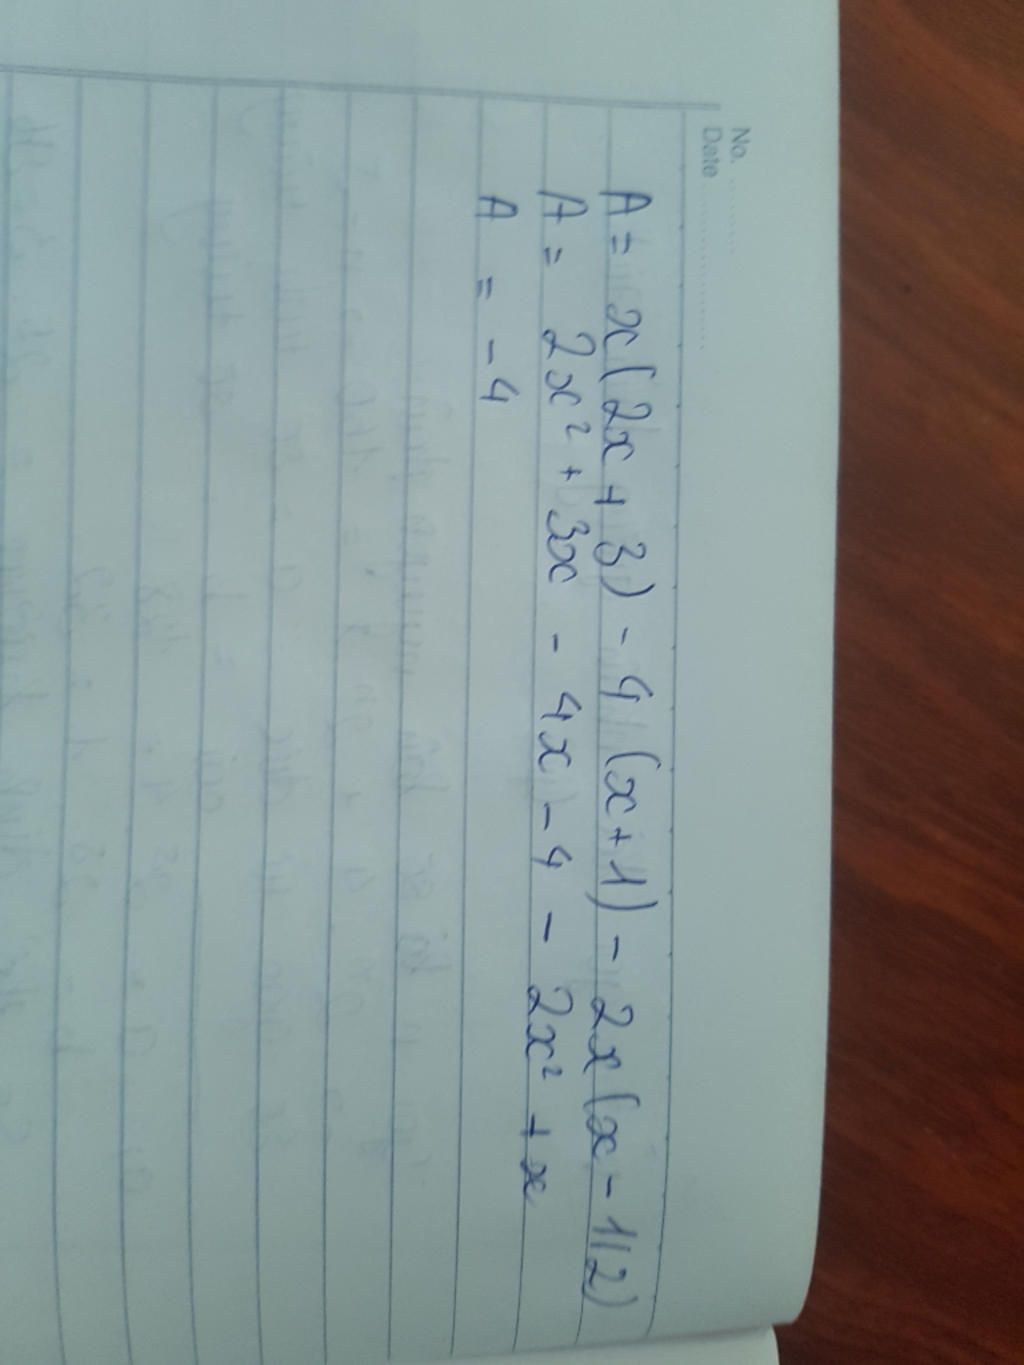 No. ..........
Date ....................
A = x(2x + 3) - 4(x+1) - 2x(x - 1/2)
A = 2x² + 3x - 4x - 4 - 2x² + x
A = -4